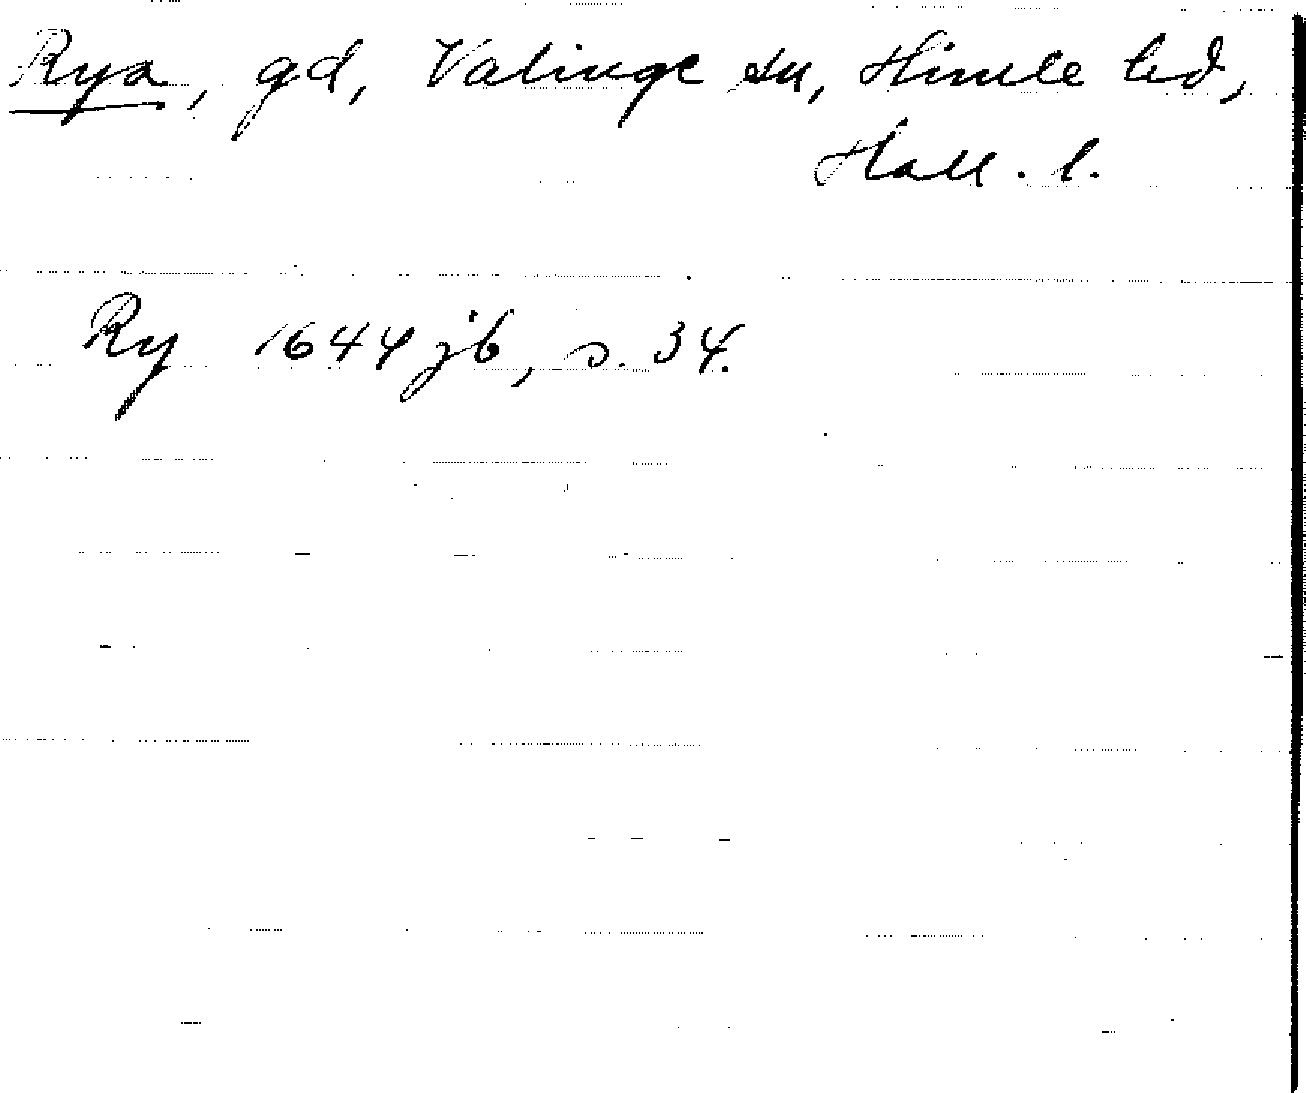 Rya, gd, Valinge sn, Himle hd,
Hall. l.
Ry 1644 jb, s. 34.